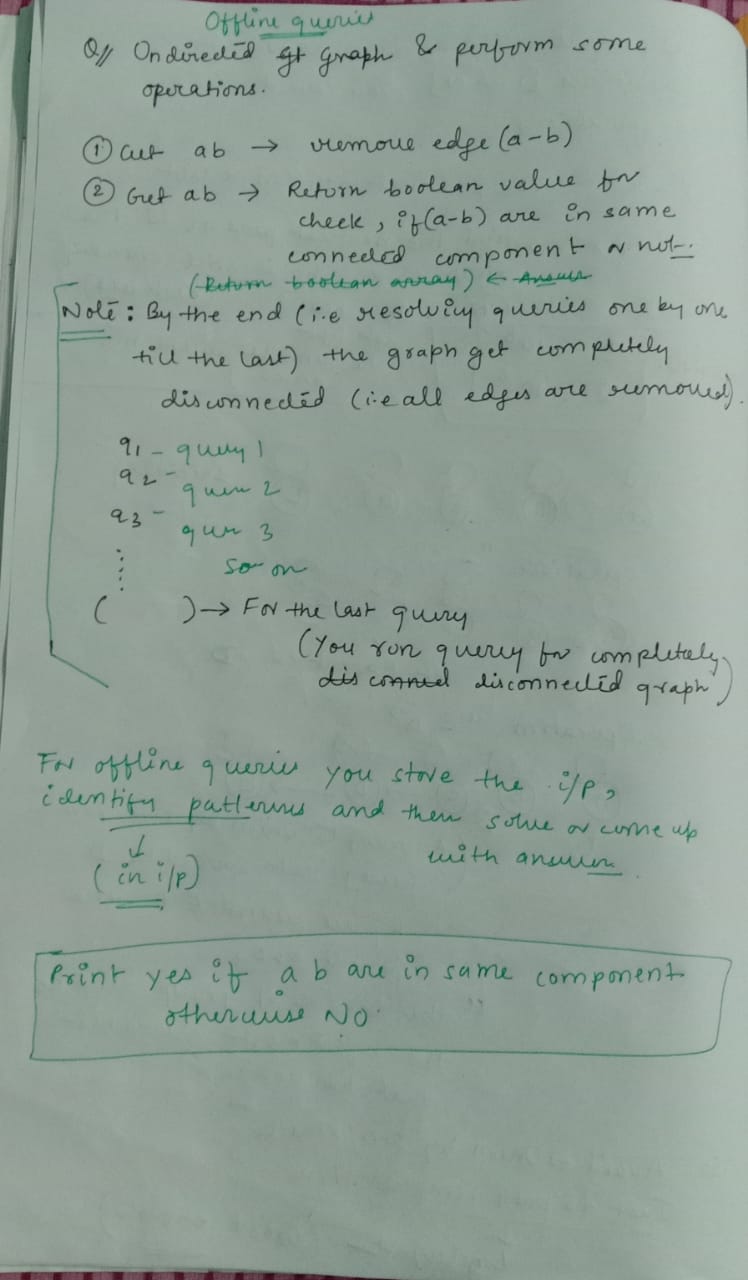 Offline queries
Q// Ondirected gt graph & perform some
operations.
① Cut ab → remove edge (a-b)
② Get ab → Return boolean value for
check, if (a-b) are in same
connected component or not.
(Return boolean array) ← Answer
Note : By the end (i.e resolving queries one by one
till the last) the graph get completely
disconnected (i.e all edges are removed).
q1 - query 1
q2 - quer 2
q3 - quer 3
so on
( ) → For the last query
(You run query for completely
dis conned disconnected graph)
For offline queries you store the i/p,
identify patterns and then solve or come up
with answer.
↓
(in i/p)
Print yes if a b are in same component
otherwise NO.